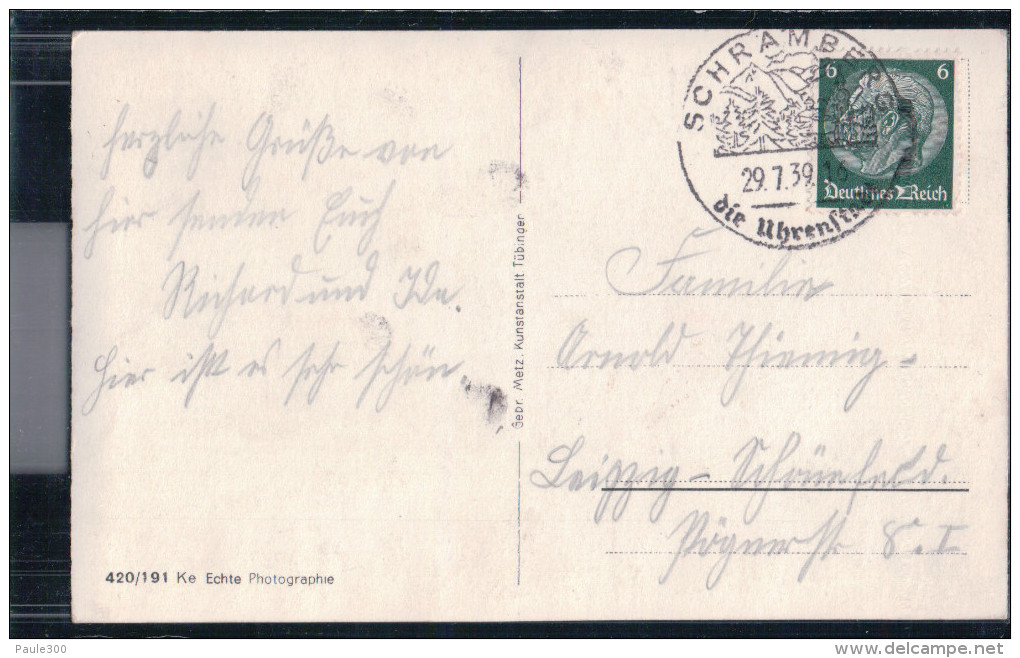 SCHRAMBERG
29.7.39.16
die Uhrenstadt
6 6
Deutsches Reich
herzliche Grüße von
hier senden Euch
Richard und Ida.
Hier ist es sehr schön.
Gebr. Metz. Kunstanstalt Tübingen
Familie
Arnold Thiemig-
Leipzig - Schönefeld.
Pögnerstr 8. I
420/191 Ke Echte Photographie
Paule300
delcampe.net